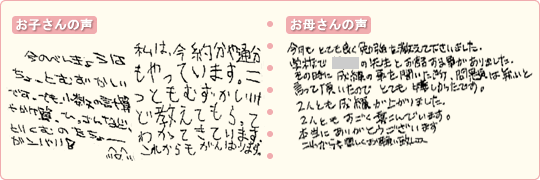 お子さんの声
今のべんきょうは
ちょっとむずかしい
です。でも、小数の
わり算
がんばり
私は、今約分や通分
もやっています。二
つともむずかしいけ
ど教えてもらって
わかってきています。
これからもがんばります。
お母さんの声
今月もとても良く勉強を教えて下さいました。
学校で の先生とお話する事がありました。
その時に成績の事を聞いた所、問題は無いと
言って頂いたのでとても嬉しかったです。
2人とも成績が上がりました。
2人ともすごく喜こんでいます。
本当にありがとうございます
これからも宜しくお願い致します。